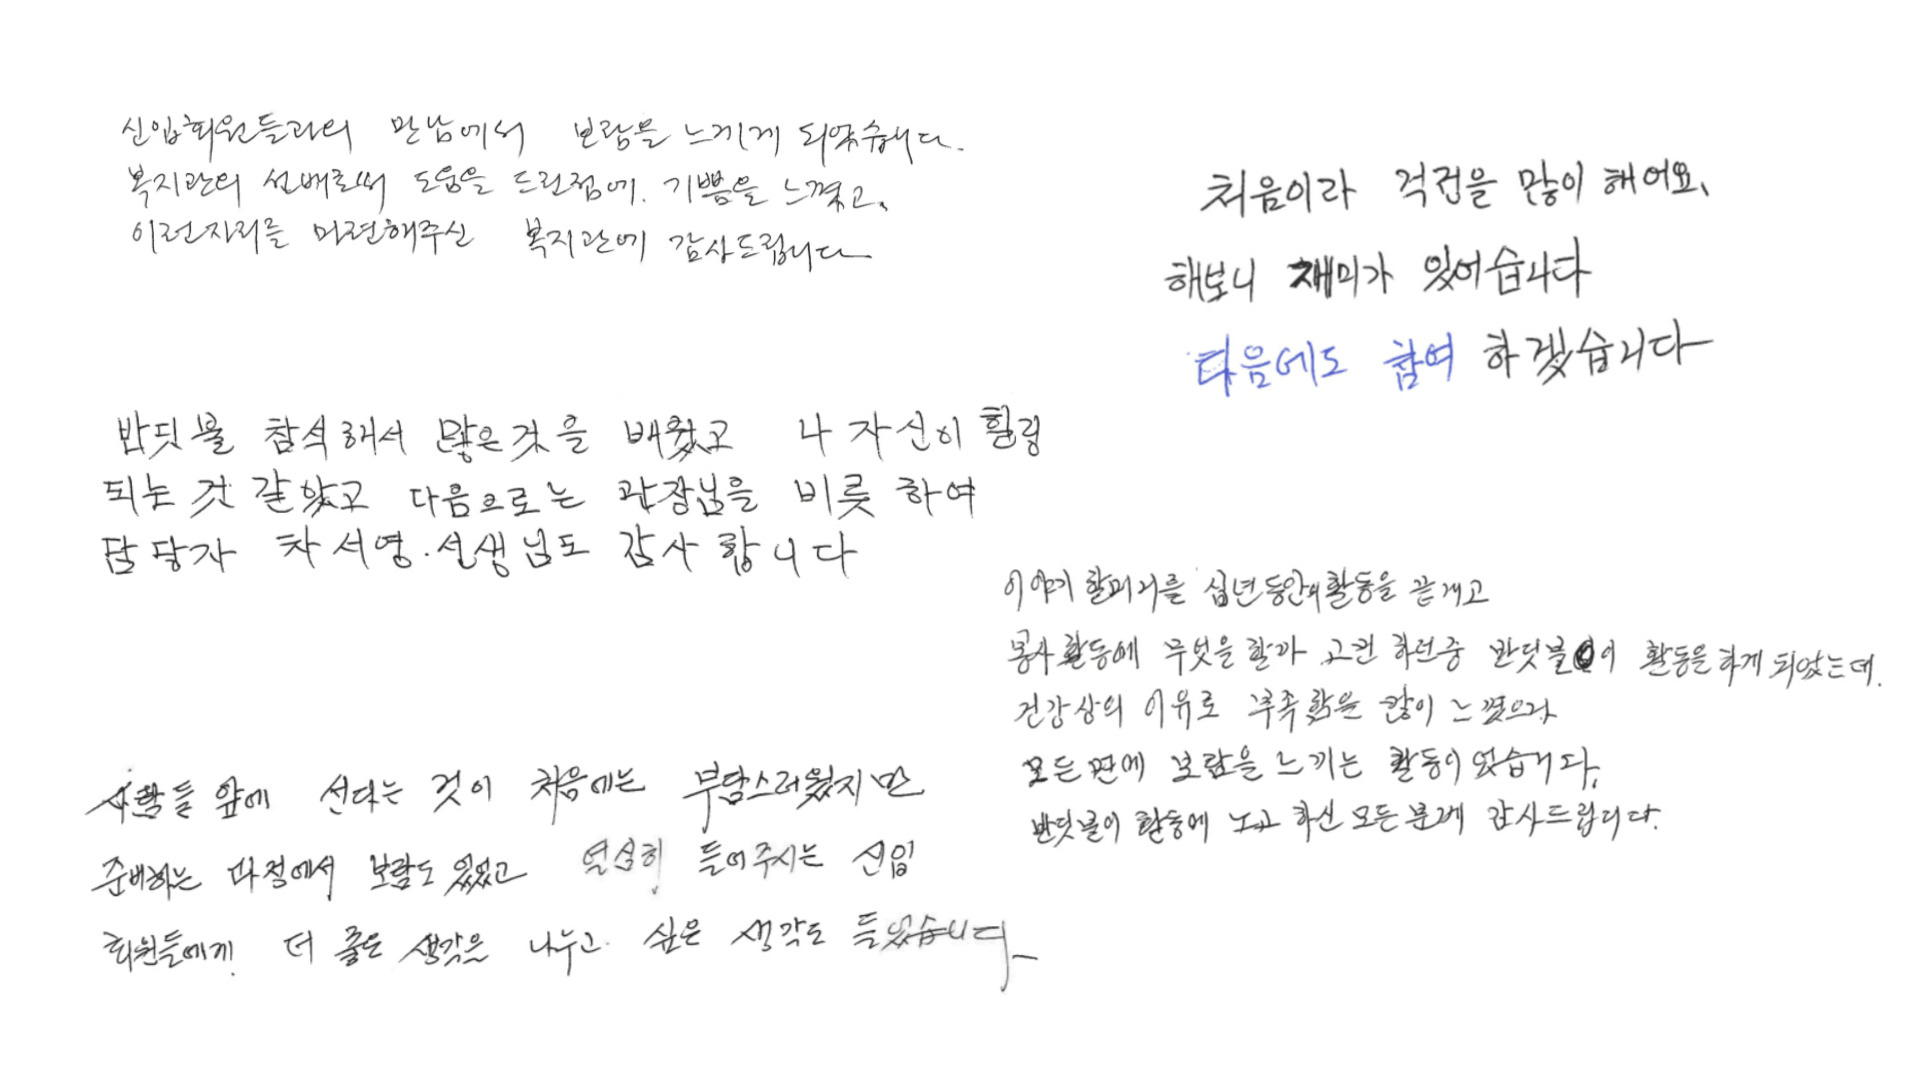 신입회원들과의 만남에서 보람을 느끼게 되었습니다.
복지관의 선배로써 도움을 드린점에. 기쁨을 느꼈고,
이런자리를 마련해주신 복지관에 감사드립니다
처음이라 걱정을 많이 해어요,
해보니 재미가 있어습니다
다음에도 참여 하겠습니다
반딧불 참석해서 많은것을 배웠고 나 자신이 힐링
되는 것 같았고 다음으로는 관장님을 비롯 하여
담당자 차서영.선생님도 감사 합니다
이야기 할머니를 십년동안의 활동을 끝내고
봉사 활동에 무엇을 할까 고민 하던중 반딧불이 활동을 하게 되었는데.
건강상의 이유로 부족함을 많이 느꼈으나
모든 면에 보람을 느끼는 활동이었습니다.
반딧불이 활동에 노고 하신 모든 분께 감사드립니다.
사람들 앞에 선다는 것이 처음에는 부담스러웠지만
준비하는 과정에서 보람도 있었고 열심히 들어주시는 신입
회원들에게 더 좋은 생각은 나누고 싶은 생각도 들었습니다